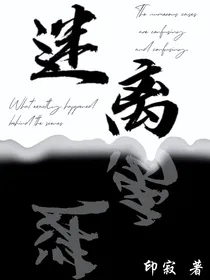 The numerous cases
are confusing
and confusing.
迷离
What exactly happened
behind the scenes
印寂 著